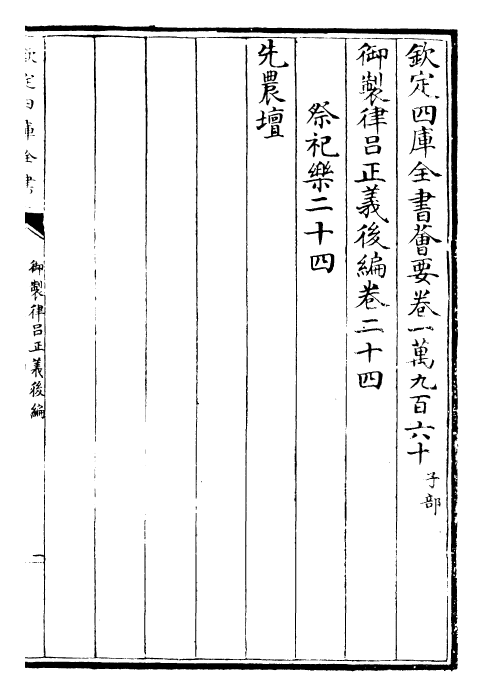 欽定四庫全書薈要卷一萬九百六十 子部
御製律呂正義後編卷二十四
祭祀樂二十四
先農壇
欽定四庫全書
御製律呂正義後編
一